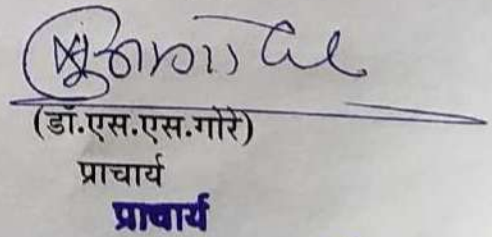 (डॉ.एस.एस.गोरे)
प्राचार्य
प्राचार्य